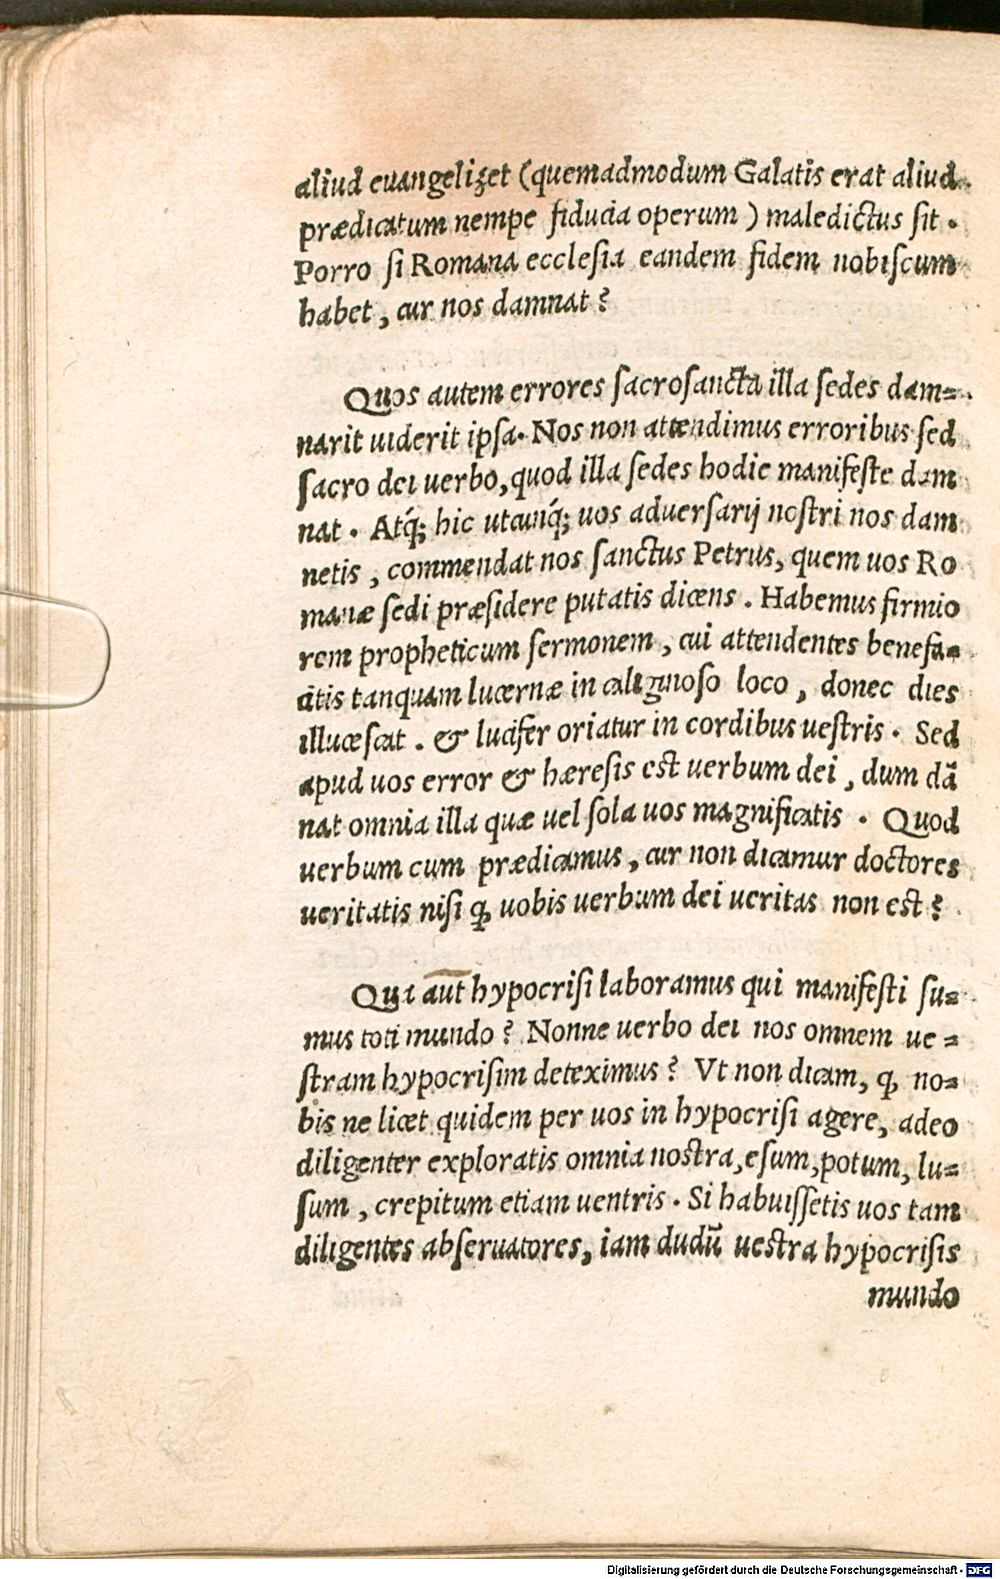 aliud euangelizet (quemadmodum Galatis erat aliud
prædicatum nempe fiducia operum) maledictus sit.
Porro ſi Romana eccleſia eandem fidem nobiſcum
habet, cur nos damnat?
Quos autem errores ſacroſancta illa ſedes dam=
narit uiderit ipſa. Nos non attendimus erroribus ſed
ſacro dei uerbo, quod illa ſedes hodie manifeſte dam
nat. Atq́; hic utcunq́; uos aduerſarij noſtri nos dam
netis, commendat nos ſanctus Petrus, quem uos Ro
manæ ſedi præſidere putatis dicens. Habemus firmio
rem propheticum ſermonem, cui attendentes benefa=
citis tanquam lucernæ in caliginoſo loco, donec dies
illuceſcat. & lucifer oriatur in cordibus ueſtris. Sed
apud uos error & hæreſis est uerbum dei, dum dā
nat omnia illa quæ uel ſola uos magnificatis. Quod
uerbum cum prædicamus, cur non dicamur doctores
ueritatis niſi ꝙ uobis uerbum dei ueritas non est?
Qua aut̄ hypocriſi laboramus qui manifeſti ſu=
mus toti mundo? Nonne uerbo dei nos omnem ue=
ſtram hypocriſim deteximus? Vt non dicam, ꝙ no=
bis ne licet quidem per uos in hypocriſi agere, adeo
diligenter exploratis omnia noſtra, eſum, potum, lu=
ſum, crepitum etiam uentris. Si habuiſſetis uos tam
diligentes abſeruatores, iam dudū ueſtra hypocriſis
mundo
Digitalisierung gefördert durch die Deutsche Forschungsgemeinschaft - DFG